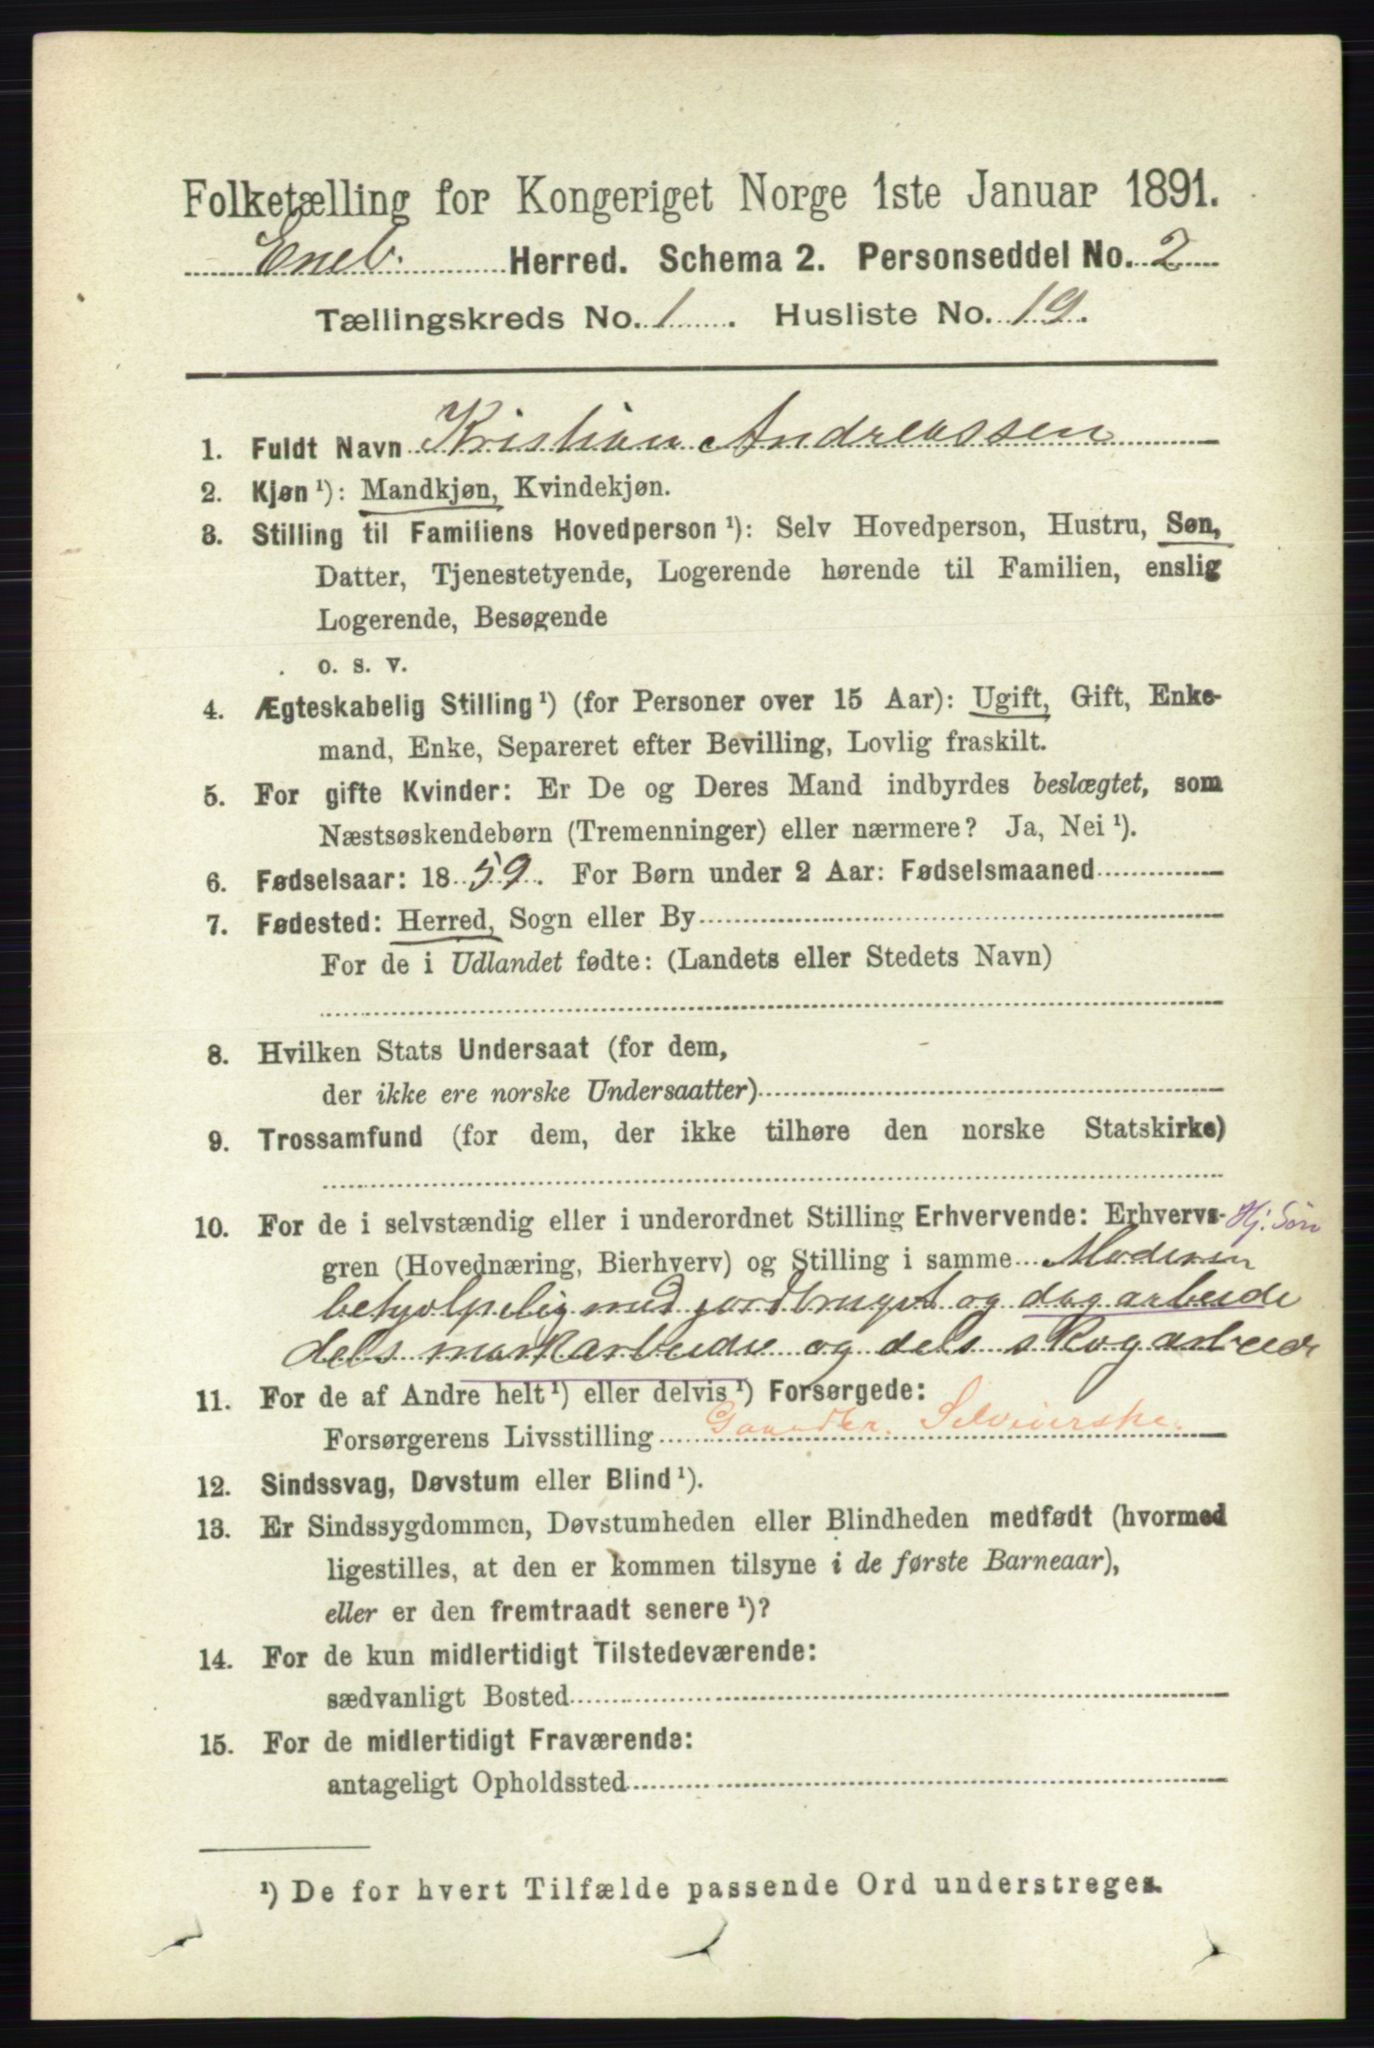 Folketælling for Kongeriget Norge 1ste Januar 1891.
Eneb. Herred. Schema 2. Personseddel No. 2
Tællingskreds No. 1. Husliste No. 19.
1. Fuldt Navn Kristian Andreassen
2. Kjøn¹): Mandkjøn, Kvindekjøn.
3. Stilling til Familiens Hovedperson¹): Selv Hovedperson, Hustru, Søn,
Datter, Tjenestetyende, Logerende hørende til Familien, enslig
Logerende, Besøgende
o. s. v.
4. Ægteskabelig Stilling¹) (for Personer over 15 Aar): Ugift, Gift, Enke-
mand, Enke, Separeret efter Bevilling, Lovlig fraskilt.
5. For gifte Kvinder: Er De og Deres Mand indbyrdes beslægtet, som
Næstsøskendebørn (Tremenninger) eller nærmere? Ja, Nei¹).
6. Fødselsaar: 1859. For Børn under 2 Aar: Fødselsmaaned
7. Fødested: Herred, Sogn eller By
For de i Udlandet fødte: (Landets eller Stedets Navn)
8. Hvilken Stats Undersaat (for dem,
der ikke ere norske Undersaatter)
9. Trossamfund (for dem, der ikke tilhøre den norske Statskirke)
10. For de i selvstændig eller i underordnet Stilling Erhvervende: Erhvervs- Hj. Søn
gren (Hovednæring, Bierhverv) og Stilling i samme Moderen
behjolpelig med jordbruget og dagarbeide
dels markarbeide og dels skogarbeide
11. For de af Andre helt¹) eller delvis¹) Forsørgede:
Forsørgerens Livsstilling Gaardbr. Selveierske.
12. Sindssvag, Døvstum eller Blind¹).
13. Er Sindssygdommen, Døvstumheden eller Blindheden medfødt (hvormed
ligestilles, at den er kommen tilsyne i de første Barneaar),
eller er den fremtraadt senere¹)?
14. For de kun midlertidigt Tilstedeværende:
sædvanligt Bosted
15. For de midlertidigt Fraværende:
antageligt Opholdssted
¹) De for hvert Tilfælde passende Ord understreges.